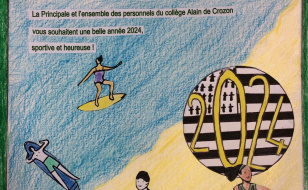 La Principale et l'ensemble des personnels du collège Alain de Crozon
vous souhaitent une belle année 2024,
sportive et heureuse !
2024